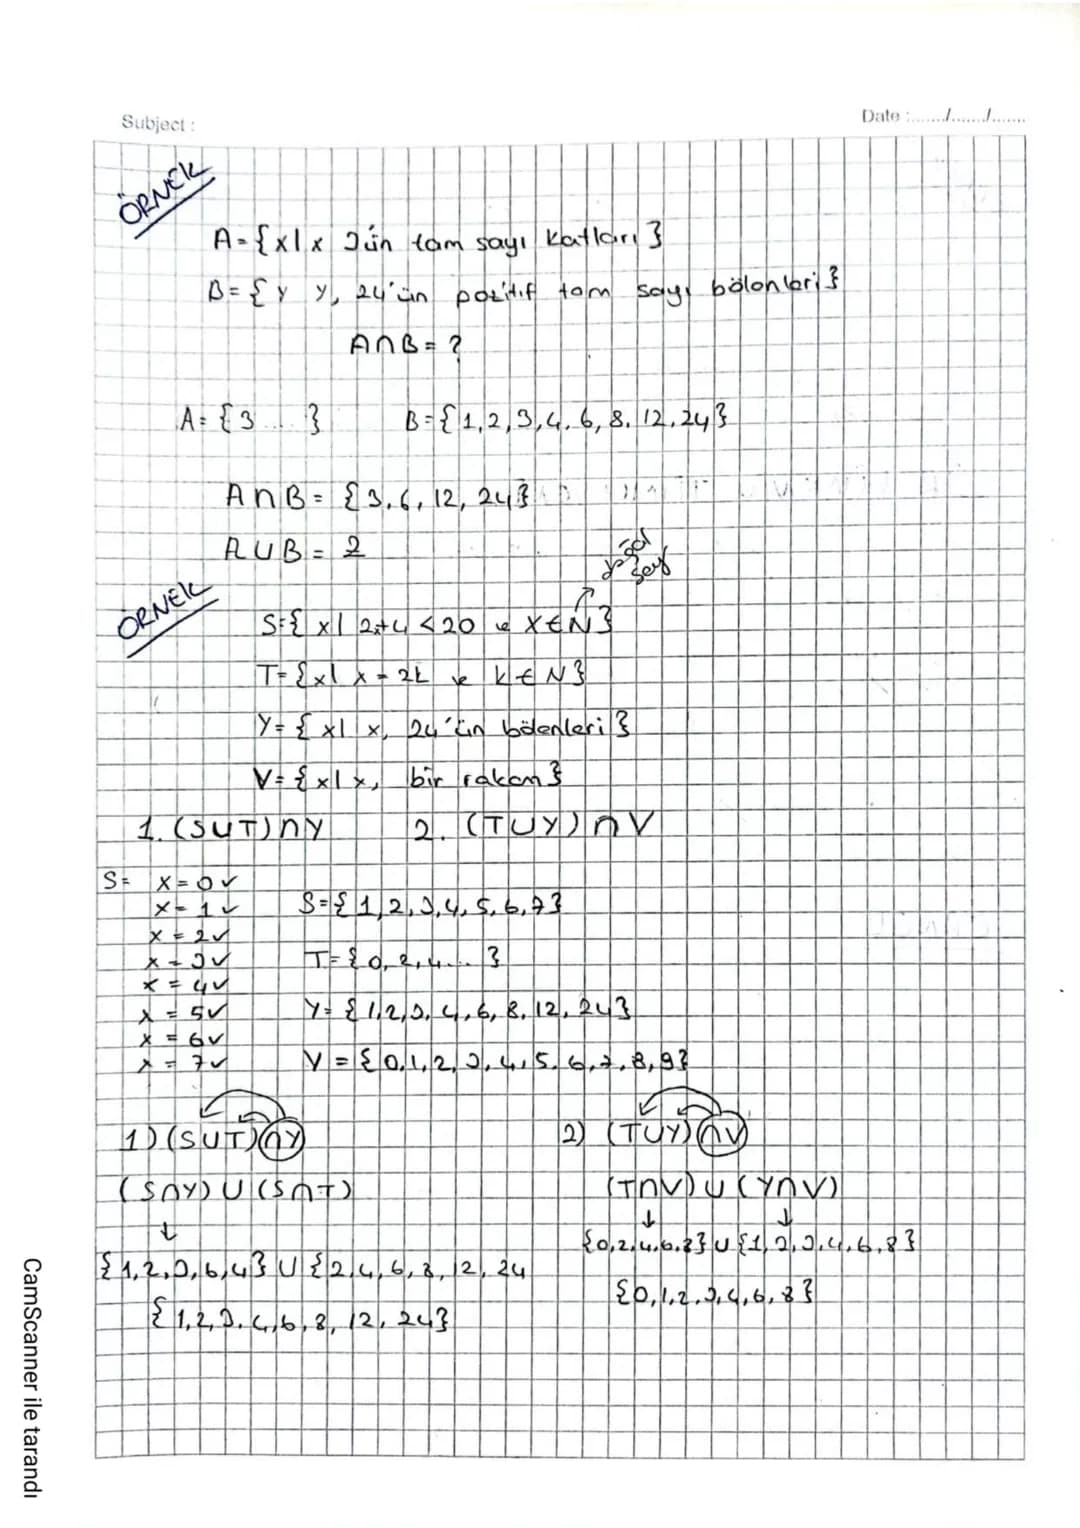 Subject :
Date :......./......./.......
ÖRNEK
A={x|x 3ün tam sayı katları}
B={y y, 24'ün pozitif tam sayı bölenleri}
A∩B=?
A={3...} B={1,2,3,4,6,8,12,24}
A∩B={3,6,12,24}
AUB=2
ÖRNEK
S={x| 2x+4<20 ve x∈N}
T={x| x=2k ve k∈N}
Y={x| x, 24'ün bölenleri}
V={x|x, bir rakam}
1.(SUT)∩Y 2.(TUY)∩V
S= x=0✓
x=1✓ S={1,2,3,4,5,6,7}
x=2✓
x=3✓ T={0,2,4...}
x=4✓
x=5✓ Y={1,2,3,4,6,8,12,24}
x=6✓
x=7✓ V={0,1,2,3,4,5,6,7,8,9}
1)(SUT)∩Y 2) (TUY)∩V
(S∩Y)U(S∩T) (T∩V)U(Y∩V)
↓ ↓ ↓
{0,2,4,6,8}U{1,2,3,4,6,8}
{1,2,3,6,4}U{2,4,6,8,12,24
{0,1,2,3,4,6,8}
{1,2,3,4,6,8,12,24}
CamScanner ile tarandı